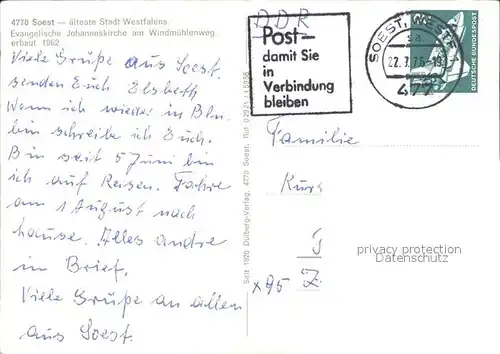 4770 Soest — älteste Stadt Westfalens
Evangelische Johanneskirche am Windmühlenweg.
erbaut 1962
Viele Grüße aus Soest
senden Euch Elsbeth
Wenn ich wieder in Bln.
bin schreibe ich Euch.
Bin seit 5 Juni bin
ich auf Reisen. Fahre
am 1 August nach
hause. Alles andre
in Brief.
Viele Grüße an allen
aus Soest.
Seit 1920 Dülberg-Verlag, 4770 Soest, Ruf 02921 / 15858
DDR
Post–
damit Sie
in
Verbindung
bleiben
SOEST, WESTF 1
sa
22.7.76-19
477
DEUTSCHE BUNDESPOST
Familie
Kurt
J
x95 Z
privacy protection
Datenschutz